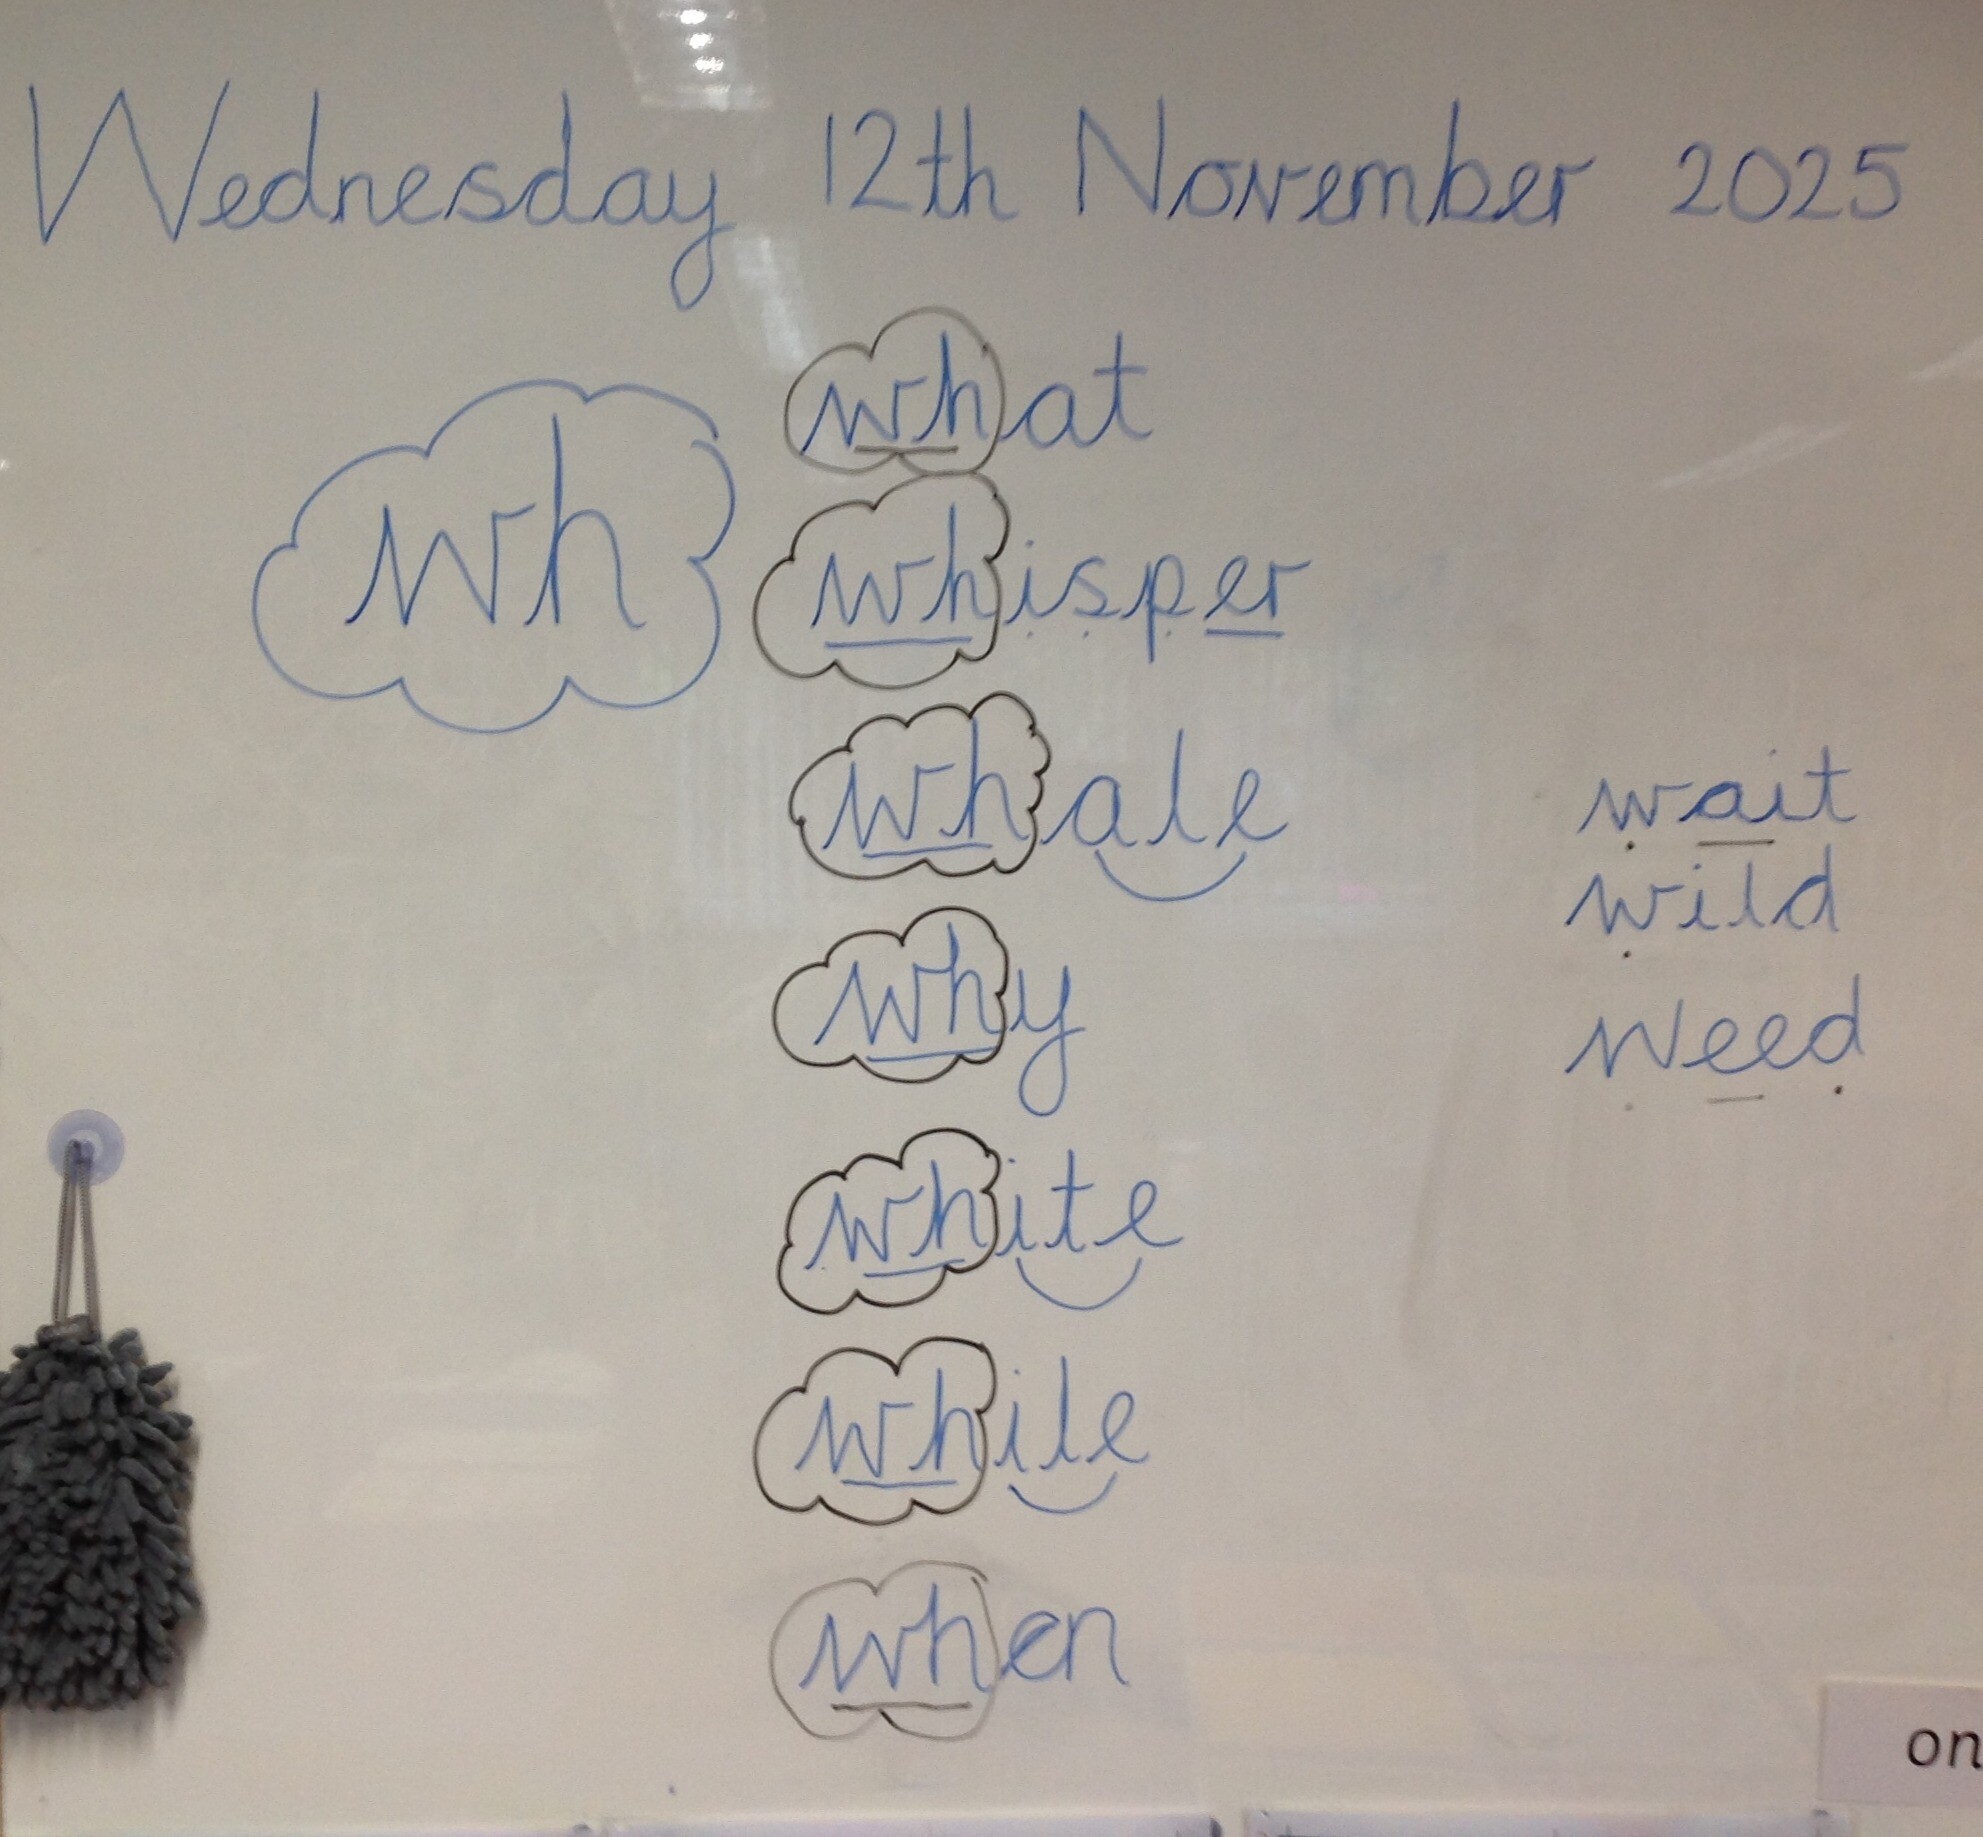 Wednesday 12th November 2025
wh
what
whisper
whale
why
white
while
when
wait
wild
weed
on